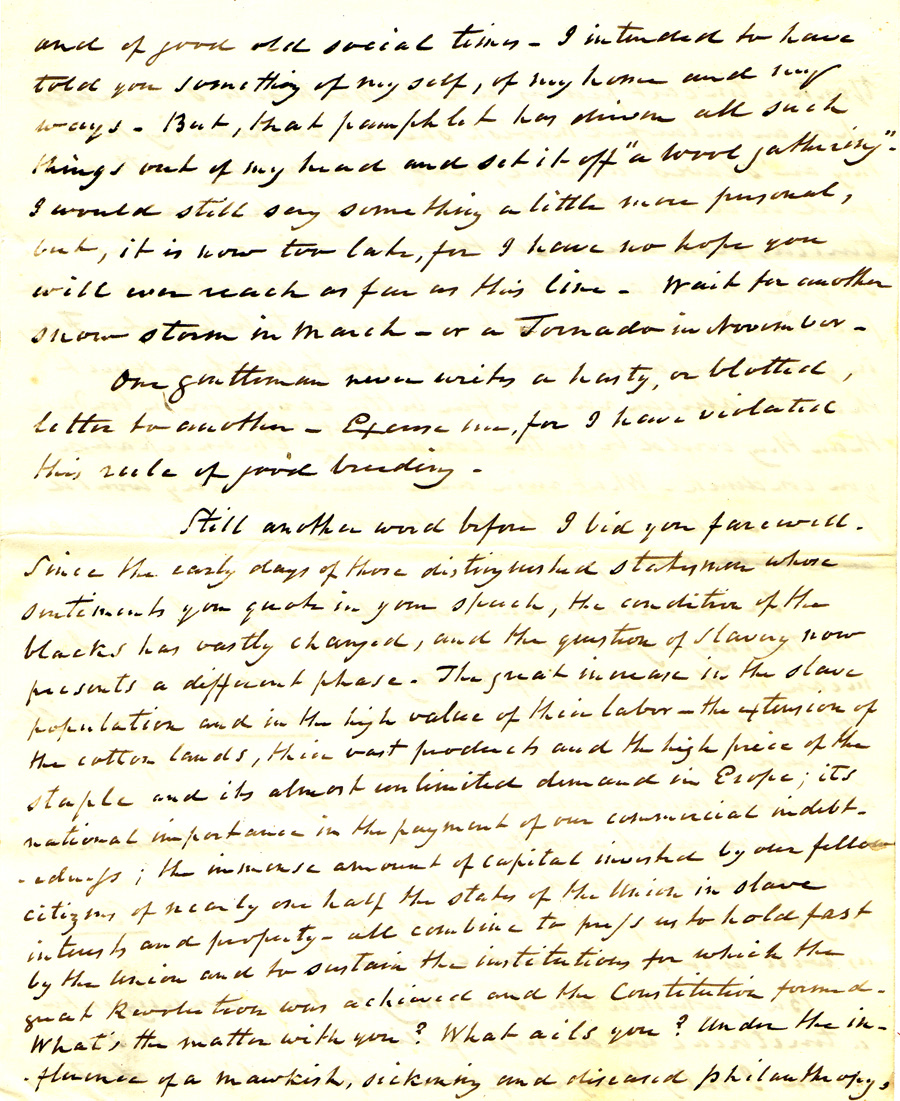 and of good old social times - I intended to have
told you something of myself, of my home and my
ways - But, that pamphlet has driven all such
things out of my head and set it off "a wool gathering".
I would still say something a little more personal,
but, it is now too late, for I have no hope you
will ever reach as far as this line - Wait for another
snow storm in March - or a Tornado in November -
One gentleman never writes a hasty, or blotted,
letter to another - Excuse me, for I have violated
this rule of good breeding -
Still another word before I bid you farewell.
Since the early days of those distinguished statesmen whose
sentiments you quote in your speech, the condition of the
blacks has vastly changed, and the question of Slavery now
presents a different phase - The great increase in the slave
population and in the high value of their labor - the extension of
the cotton lands, their vast products and the high price of the
staple and its almost unlimited demand in Erope; its
national importance in the payment of our commercial indebt-
-edness; the immense amount of capital invested by our fellow
citizens of nearly one half the states of the Union in slave
interests and property - all combine to press us to hold fast
by the Union and to sustain the institutions for which the
great Revolution was achieved and the Constitution formed -
What's the matter with you? What ails you? Under the in-
-fluence of a mawkish, sickening and diseased philanthropy,